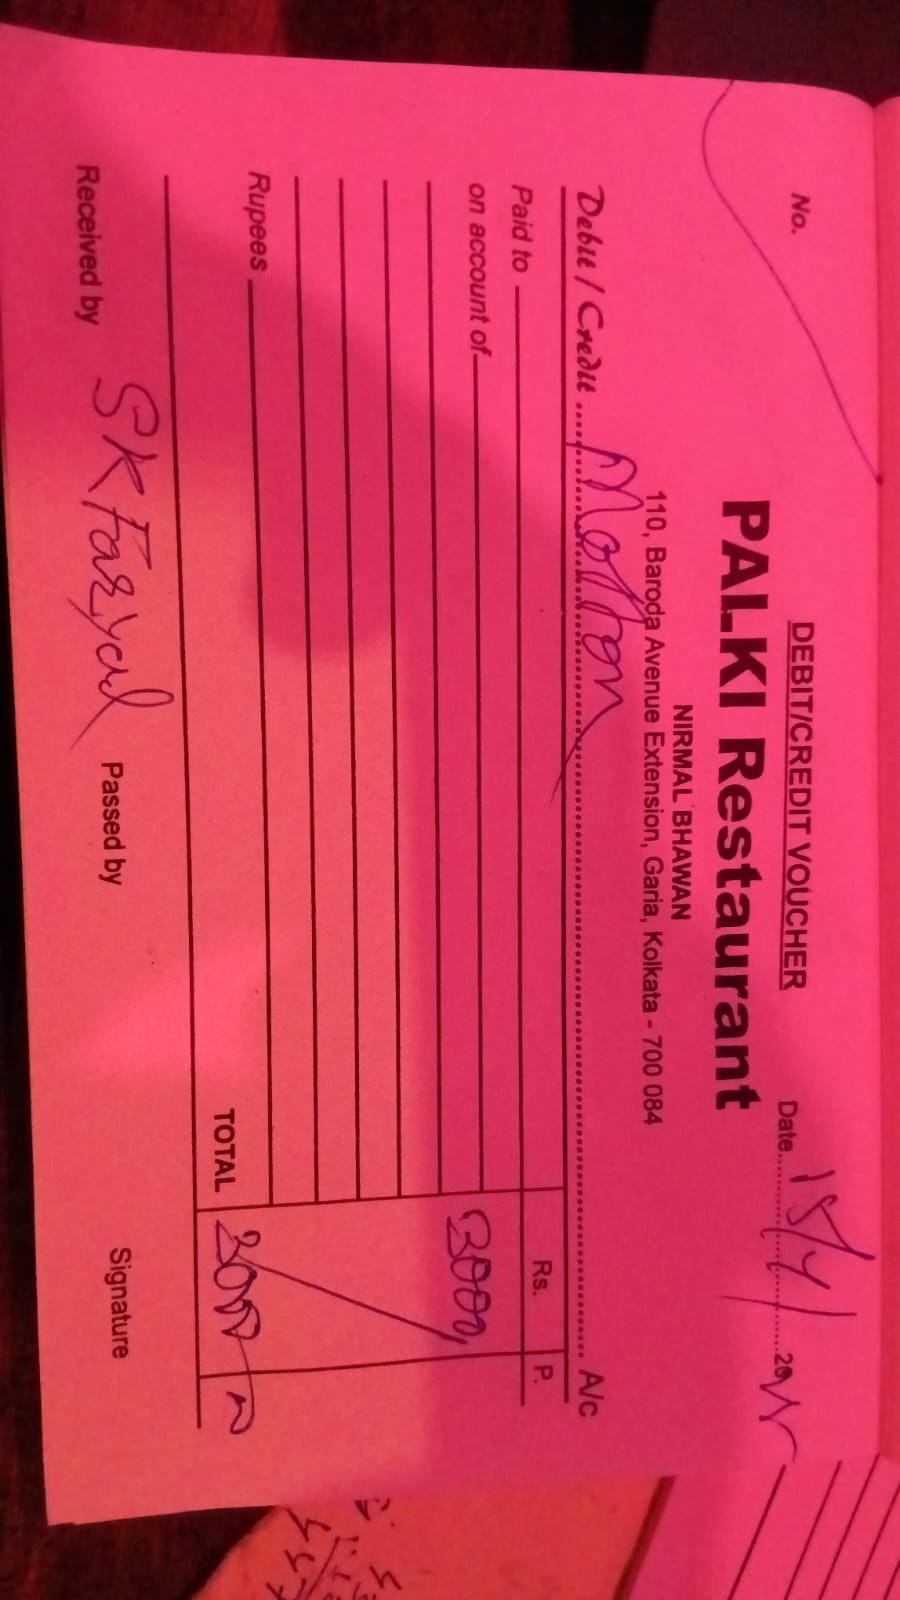 DEBIT/CREDIT VOUCHER
No.
Date 15/4/ 20
PALKI Restaurant
NIRMAL BHAWAN
110, Baroda Avenue Extension, Garia, Kolkata - 700 084
Debit / Credit Motton A/c
Rs. P.
Paid to
on account of 3000/
Rupees
TOTAL 3000
Received by SK Passed by Signature